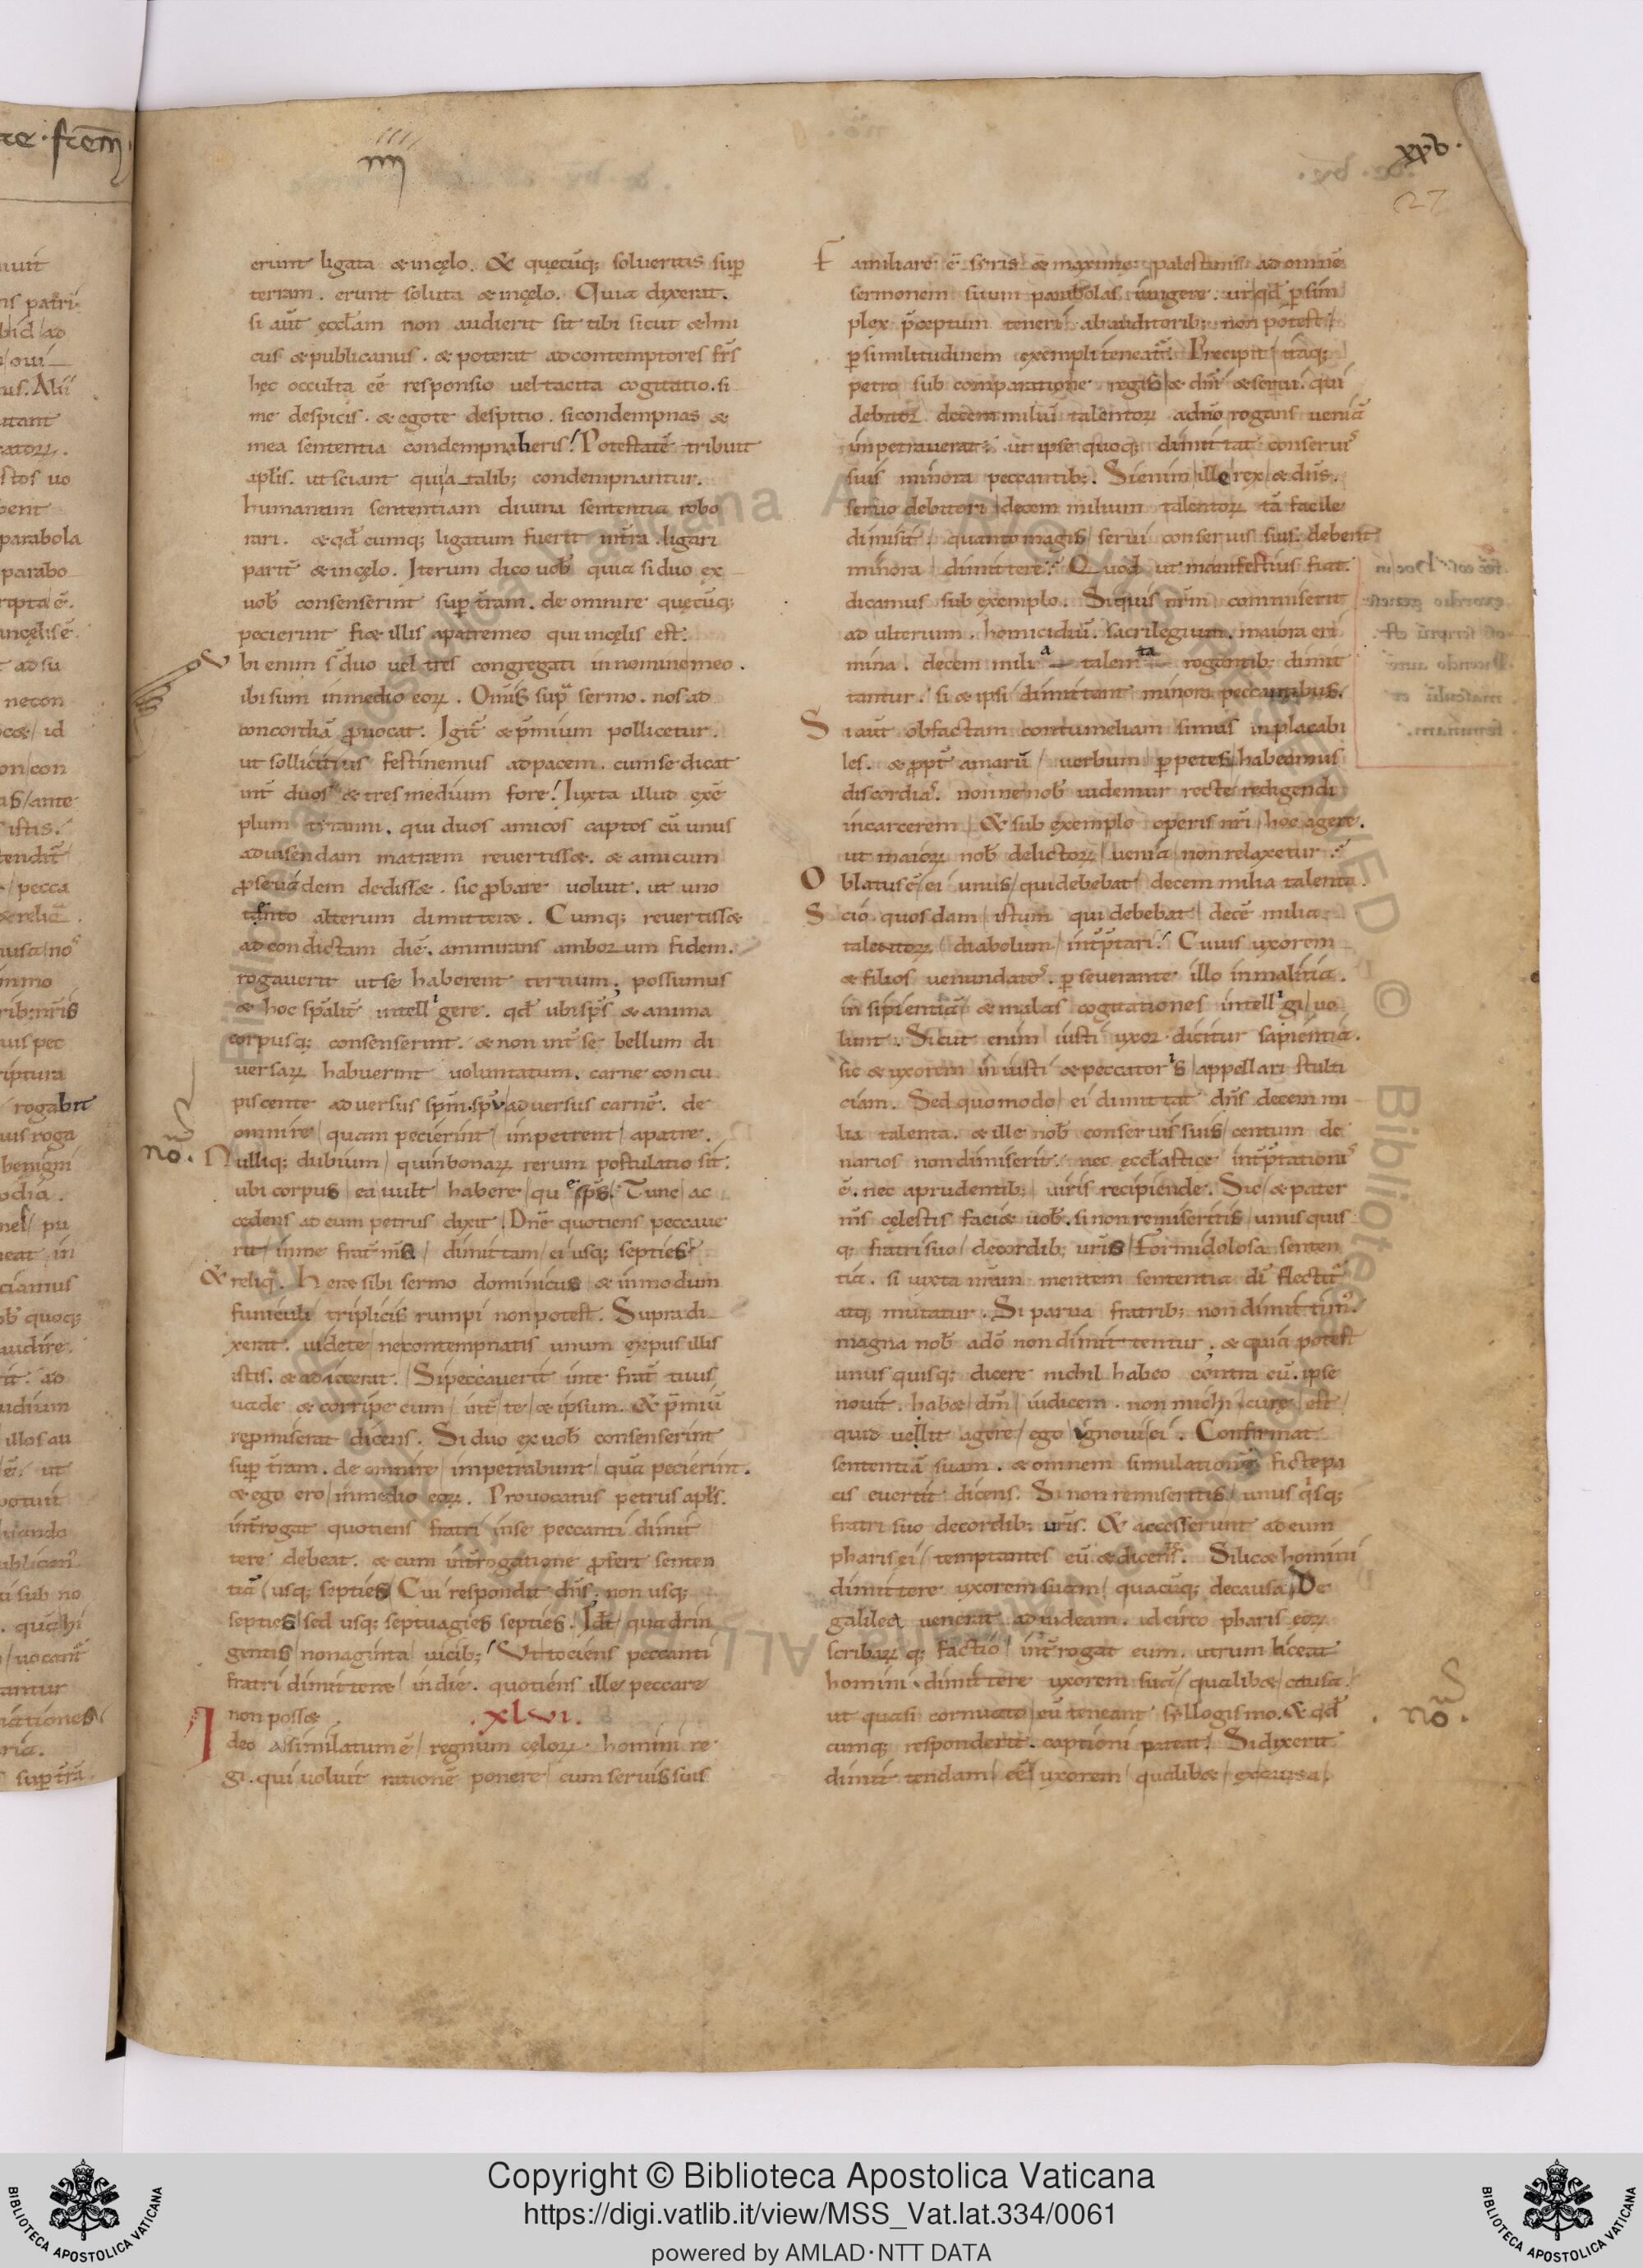 te · ſtem̅
iiii
xxv.
27
erunt ligata & incęlo. & quęcūq; solueritis sup̄
terram. erunt soluta & incęlo. Quia dixerat.
si aut̄ ęccl̄am non audierit sit tibi sicut & hni
cus & publicanus. & poterat adcontemptores fr̄s
hęc occulta eē responsio uel tacita cogitatio. si
me despicis. & egote despitio. sicondempnas &
mea sententia condempnaberis. Potestatē tribuit
apl̄is. ut sciant quia talib; condempnantur.
humanam sententiam diuina sententia robo
rari. & qd̄ cumq; ligatum fuerit int̄ra ligari
parit̄ & incęlo. Iterum dico uob̄ quia si duo ex
uob̄ consenserint sup̄ t̄ram. de omnire quęcūq;
pecierint fi& illis apatremeo qui incęlis est.
V bi enim s̄ duo uel tres congregati innominemeo.
ibi sum inmedio eoꝝ. Omīs sup̄ sermo. nos ad
concordiā ꝓuocat. Igit̄ & p̄mium pollicetur.
ut sollicitius festinemus adpacem. cumse dicat
int̄ duos & tres medium fore. Iuxta illud exē
plum tiranni. qui duos amicos captos cū unus
aduisendam matrem reuertiss&. & amicum
ꝓse uadem dediss&. sic ꝓbare uoluit. ut uno
tento alterum dimitter&. Cumq; reuertiss&
ad condictam diē. ammirans amborum fidem.
rogauerit ut se haberent tertium; possumus
& hoc spālit̄ intelligere. qd̄ ubi sp̄s & anima
corpusq; consenserint. & non int̄ se bellum di
uersaꝝ habuerint uoluntatum. carne concu
piscente aduersus sp̄m. sp̄u aduersus carnē. de
omnire quam pecierint impetrent apatre.
no. Nulliq; dubium quinbonaꝝ rerum postulatio sit.
ubi corpus ea uult habere quę sp̄s. Tunc ac
cedens ad eum petrus dixit. Dn̄e quotiens peccaue
rit inme frat̄ m̄s dimittam ei usq; septies
& reliq̄. Her& sibi sermo dominicus & inmodum
funiculi triplicis rumpi non potest. Supra di
xerat. uidete necontempnatis unum expusillis
istis. & adiecerat. Sipeccauerit inte frat̄ tuus
uade & corripe eum int̄ te & ipsum. & p̄miū
repmiserat dicens. Si duo ex uob̄ consenserint
sup̄ t̄ram. de omnire impetrabunt quā pecierint.
& ego ero inmedio eoꝝ. Prouocatus petrus apl̄s.
int̄rogat quotiens fratri inse peccanti dimit
tere debeat. & cum int̄rogatione ꝓfert senten
tiā usq; septies. Cui respondit dn̄s; non usq;
septies sed usq; septuagies septies. Idē quadrin
gentis nonaginta uicib; Vt tociens peccanti
fratri dimitter& indie. quotiens ille peccare
non poss& .xlvi.
I deo assimilatum ē regnum cęloꝝ homini re
gi. qui uoluit rationē ponere cum seruis suis
F amiliare ē siris & maxime palestinis ad omnē
sermonem suum parabolas iungere. ut qd̄ p̱ sim
plex p̄ceptum teneri abauditorib; non potest
p̱similitudinem exempli teneat̄. Precipit itaq;
petro sub comparatione regis & dn̄i & serui. qui
debitor decem miliū talentoꝝ adn̄o rogans ueniā
inpetrauerat. ut ipse quoq; dimittat conseruis
suis minora peccantib;. Si enim ille rex & dn̄s.
seruo debitori decem milium talentoꝝ tā facile
dimisit. quanto magis serui conseruis suis debent
minora dimittere. Quod ut manifestius fiat
dicamus sub exemplo. Siquis nr̄m commiserit
ad ulterium. homicidiū. sacrilegium. maiora cri
mina. decem milia talenta rogantib; dimit
tantur. si & ipsi dimittant minora peccantibus.
S i aut̄ obfactam contumeliam simus inplacabi
les. & ꝓpt̄ amarū uerbum p̱petes habeamus
discordias. nonne nob̄ uidemur recte redigendi
incarcerem & sub exemplo operis nr̄i hoc agere.
ut maioꝝ nob̄ delictoꝝ uenia non relaxetur.
O blatus ē ei unus qui debebat decem milia talenta.
S cio quosdam istum qui debebat decē milia
talentoꝝ diabolum int̄p̄tari. Cuius uxorem
& filios uenundatos. p̱seuerante illo inmalitia.
insipientiā & malas cogitationes intelligi uo
lunt. Sicut enim iusti uxor dicitur sapientia.
sic & uxorem iniusti & peccatoris appellari stulti
ciam. Sed quomodo ei dimittat dn̄s decem mi
lia talenta. & ille nob̄ conseruis suis centum de
narios nondimiserit. nec ęccl̄astice int̄p̄tationis
ē. nec aprudentib; uiris recipiende. Sic & pater
m̄s cęlestis faci& uob̄. si non remiseritis unusquis
q; fratri suo decordib; ur̄is. Formidolosa senten
tia. si iuxta nr̄am mentem sententia dī flectit̄
atq; mutatur. Si parua fratrib; non dimittim̄.
magna nob̄ adō non dimittentur; & quia potest
unus quisq; dicere nichil habeo contra eū. ipse
nouit. hab& dm̄ iudicem. non michi curę est
quid uelit agere ego ignoui ei. Confirmat
sententiā suam. & omnem simulationem fictepa
cis euertit dicens. Si non remiseritis unus q̄sq;
fratri suo decordib; ur̄is. & accesserunt ad eum
pharisei temptantes eū & dicentes. Si lic& homini
dimittere uxorem suam quacūq; decausa. De
galilea uenerat adiudeam. idcirco phariseoꝝ
scribaꝝq; factio int̄rogat eum. utrum liceat
homini dimittere uxorem suā qualib& causa.
ut quasi cornuato eū teneant sillogismo. & qd̄
cumq; responderit. captioni pateat. Si dixerit no.
dimittendam eē uxorem qualib& excausa.
Copyright © Biblioteca Apostolica Vaticana
https://digi.vatlib.it/view/MSS_Vat.lat.334/0061
powered by AMLAD·NTT DATA
BIBLIOTECA APOSTOLICA VATICANA
BIBLIOTECA APOSTOLICA VATICANA